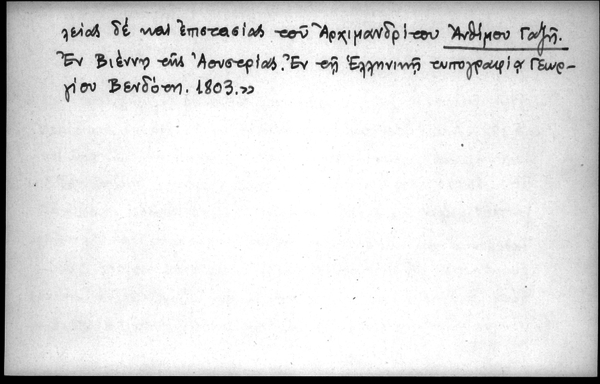 λείας δέ καὶ ἐπιστασίας τοῦ Ἀρχιμανδρίτου Ἀνθίμου Γαζῆ.
Ἐν Βιέννῃ τῆς Ἀουστρίας. Ἐν τῇ Ἑλληνικῇ τυπογραφίᾳ Γεωρ-
γίου Βενδότη. 1803.»